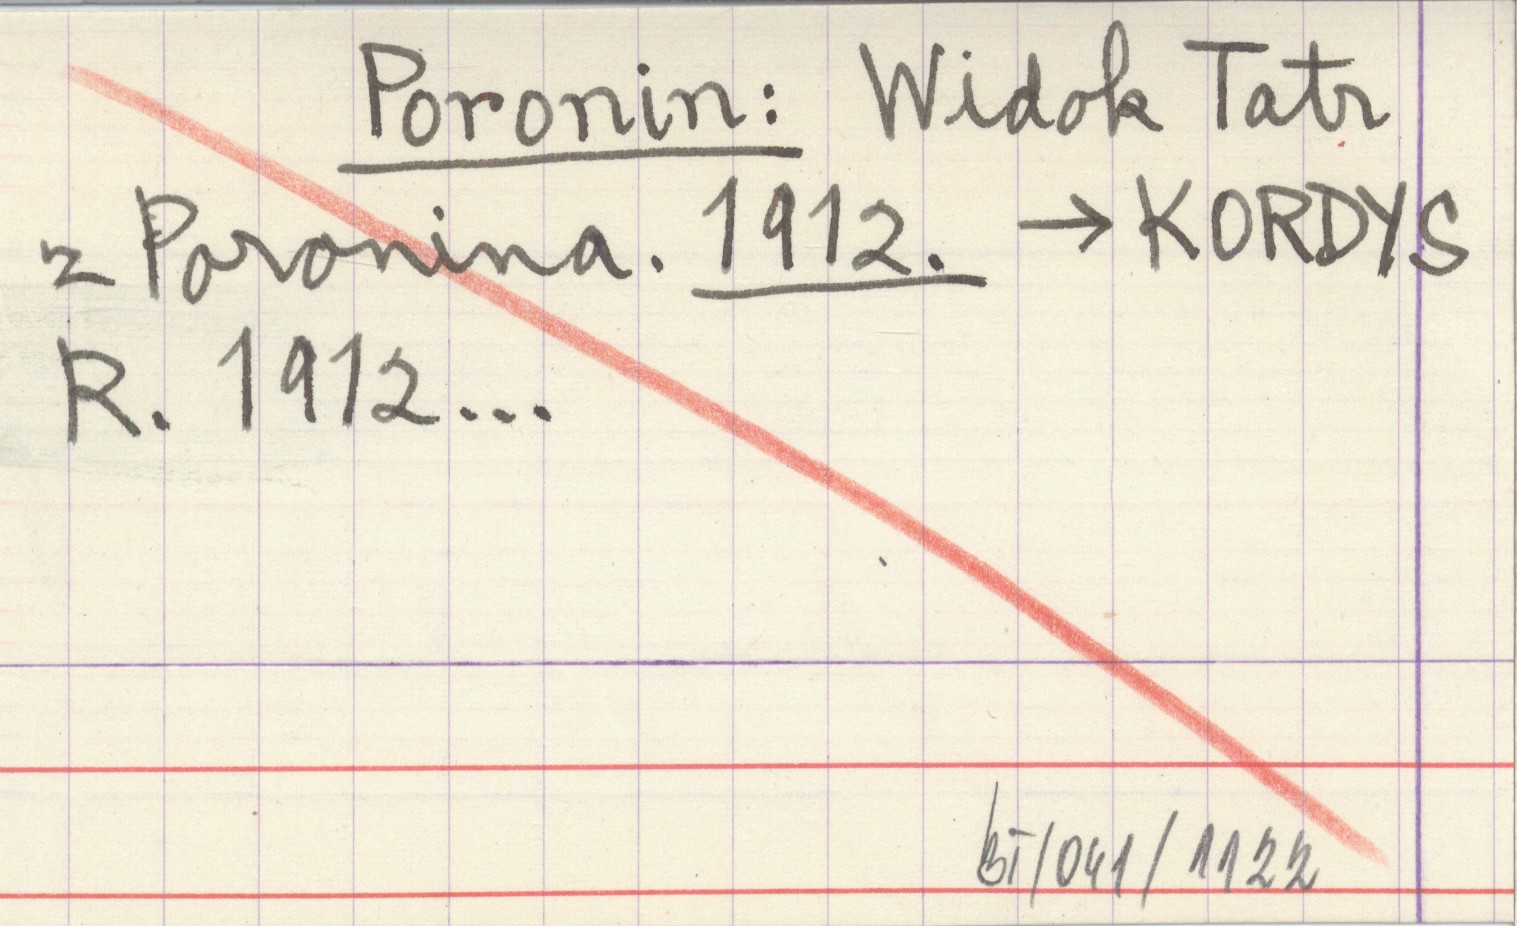 Poronin: Widok Tatr
z Poronina. 1912. → KORDYS
R. 1912...
BT/041/1122